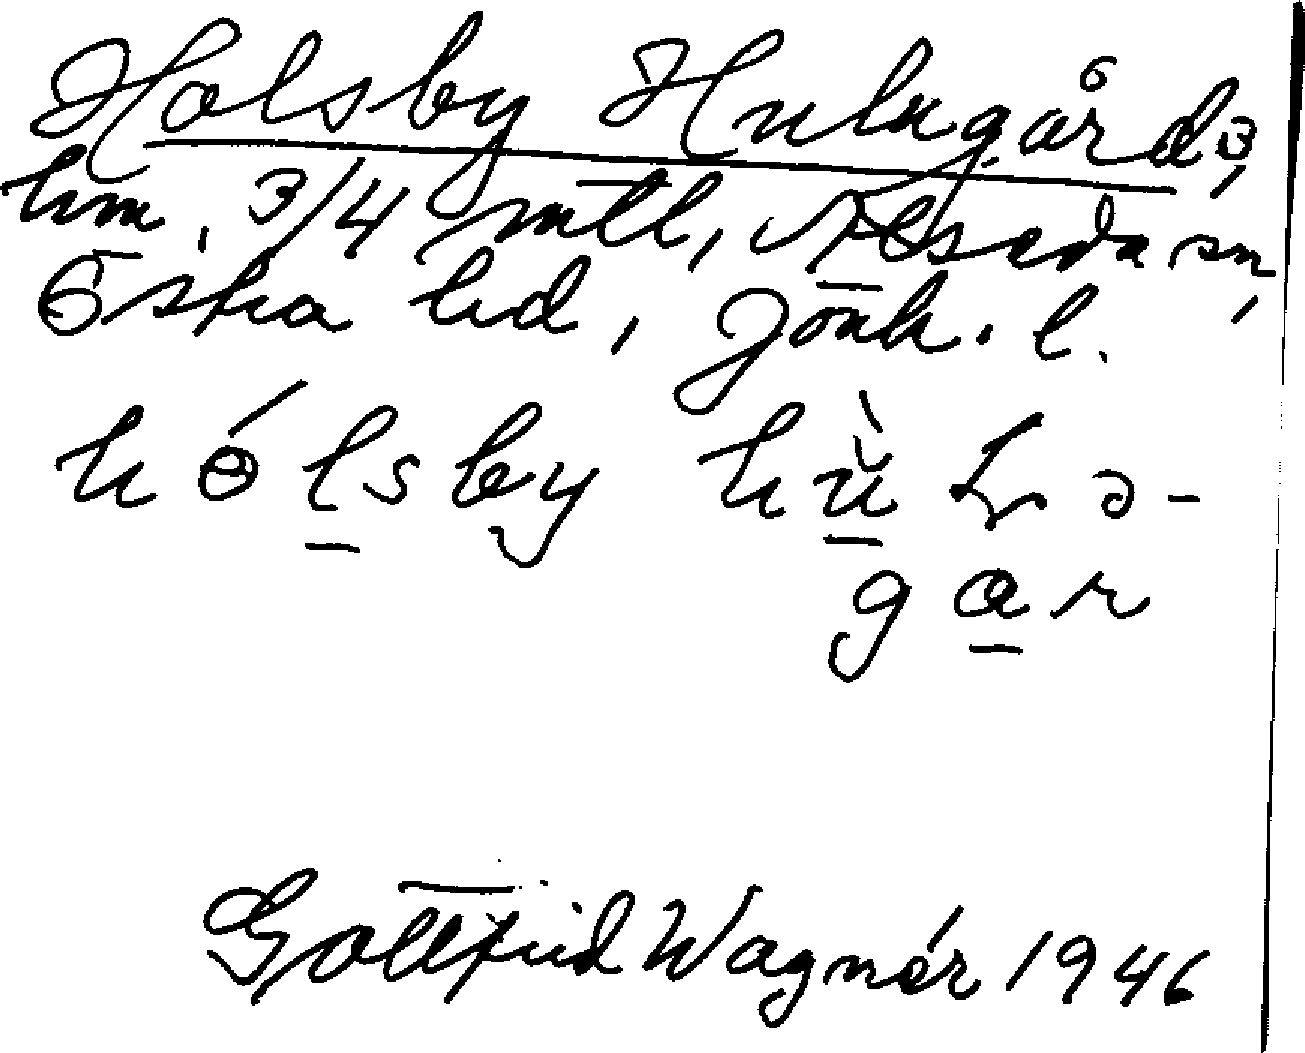 Holsby Hulugård,
hm, 3/4 mtl, Näshults sn,
Östra hd, Jönk. l.
hólsby hù
gar
Gottfrid Wagnér 1946